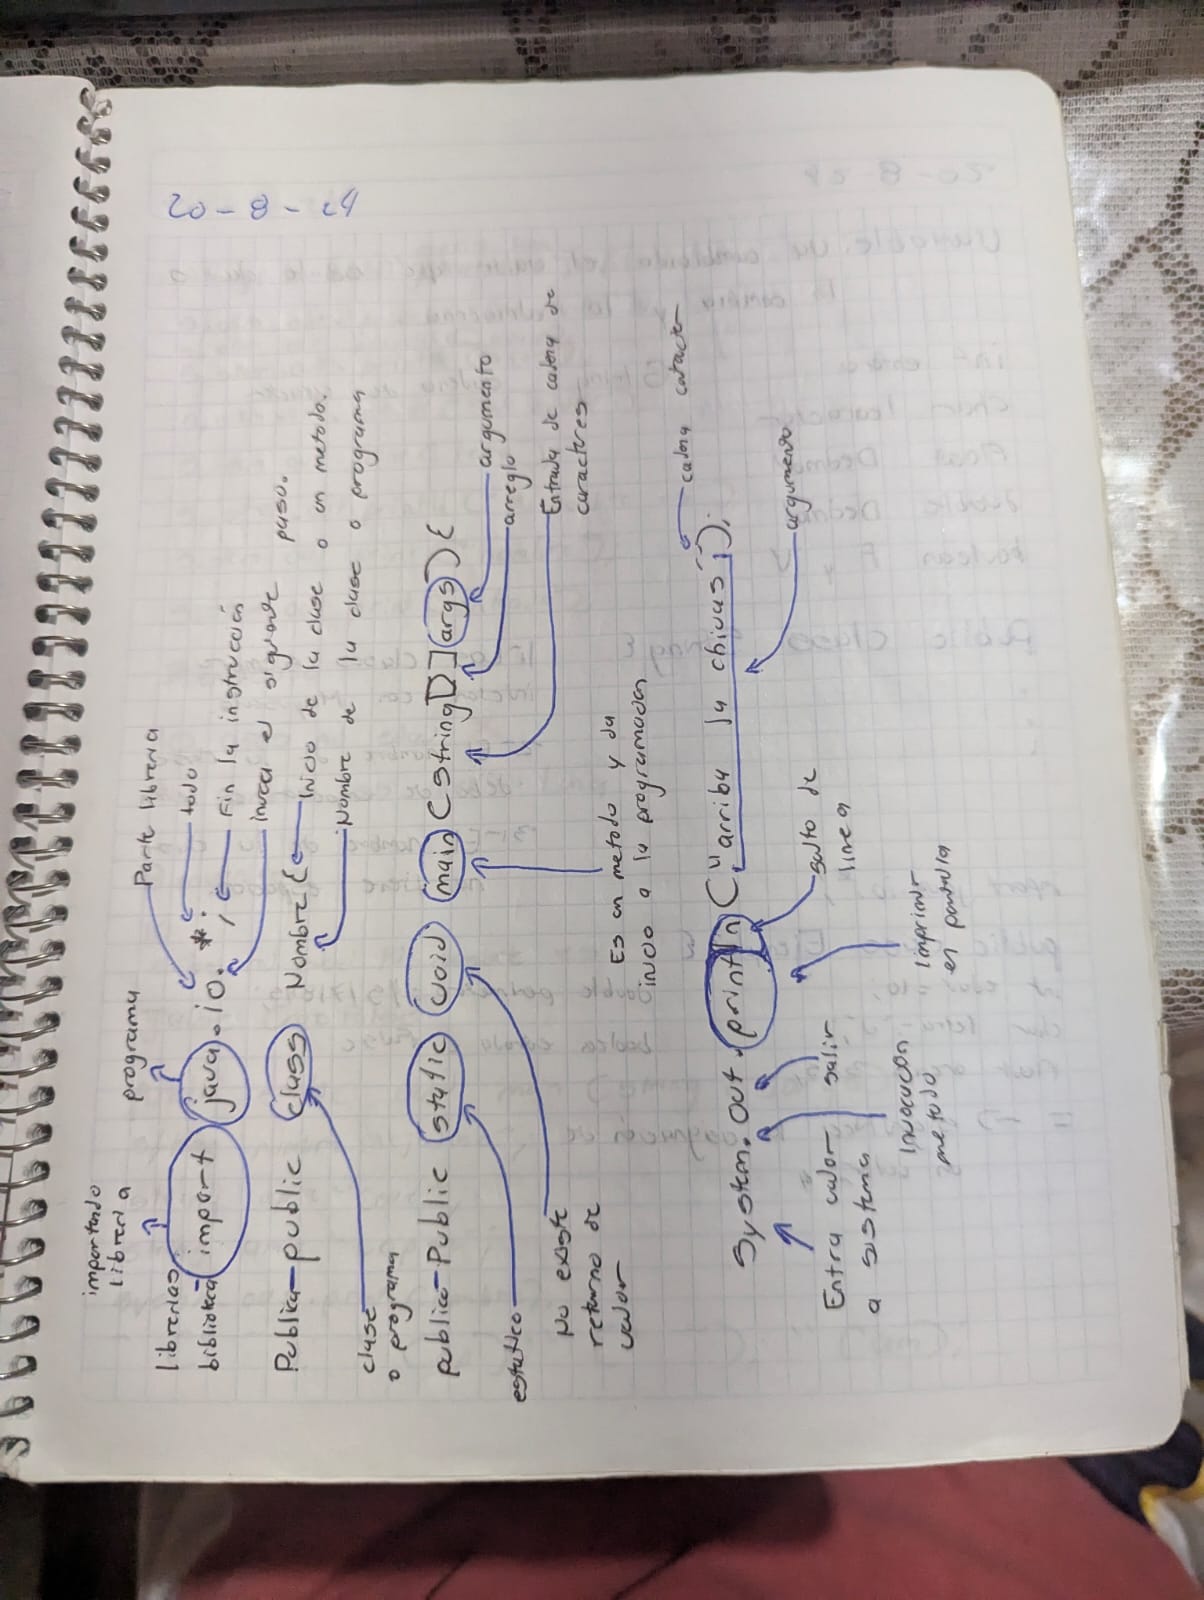 20-8-24
importando
libreria
programa
Parte libreria
librerias
biblioteca - import java.io.*;
todo
Fin la instrucción
invoca el siguiente paso.
Publica-public class Nombre {
Inicio de la clase o un metodo.
Nombre de la clase o programa
clase
o programa
publico-Public static void main (String[] args) {
argumento
arreglo
Entrada de cadena de
caracteres
estatico
No existe
retorno de
valor
Es un metodo y da
inicio a la programacion
System.out.println ("arriba la chivas");
cadena caracter
argumento
salto de
linea
Entra valor
a sistema
salir
Invocación
metodo
Imprimir
en pantalla